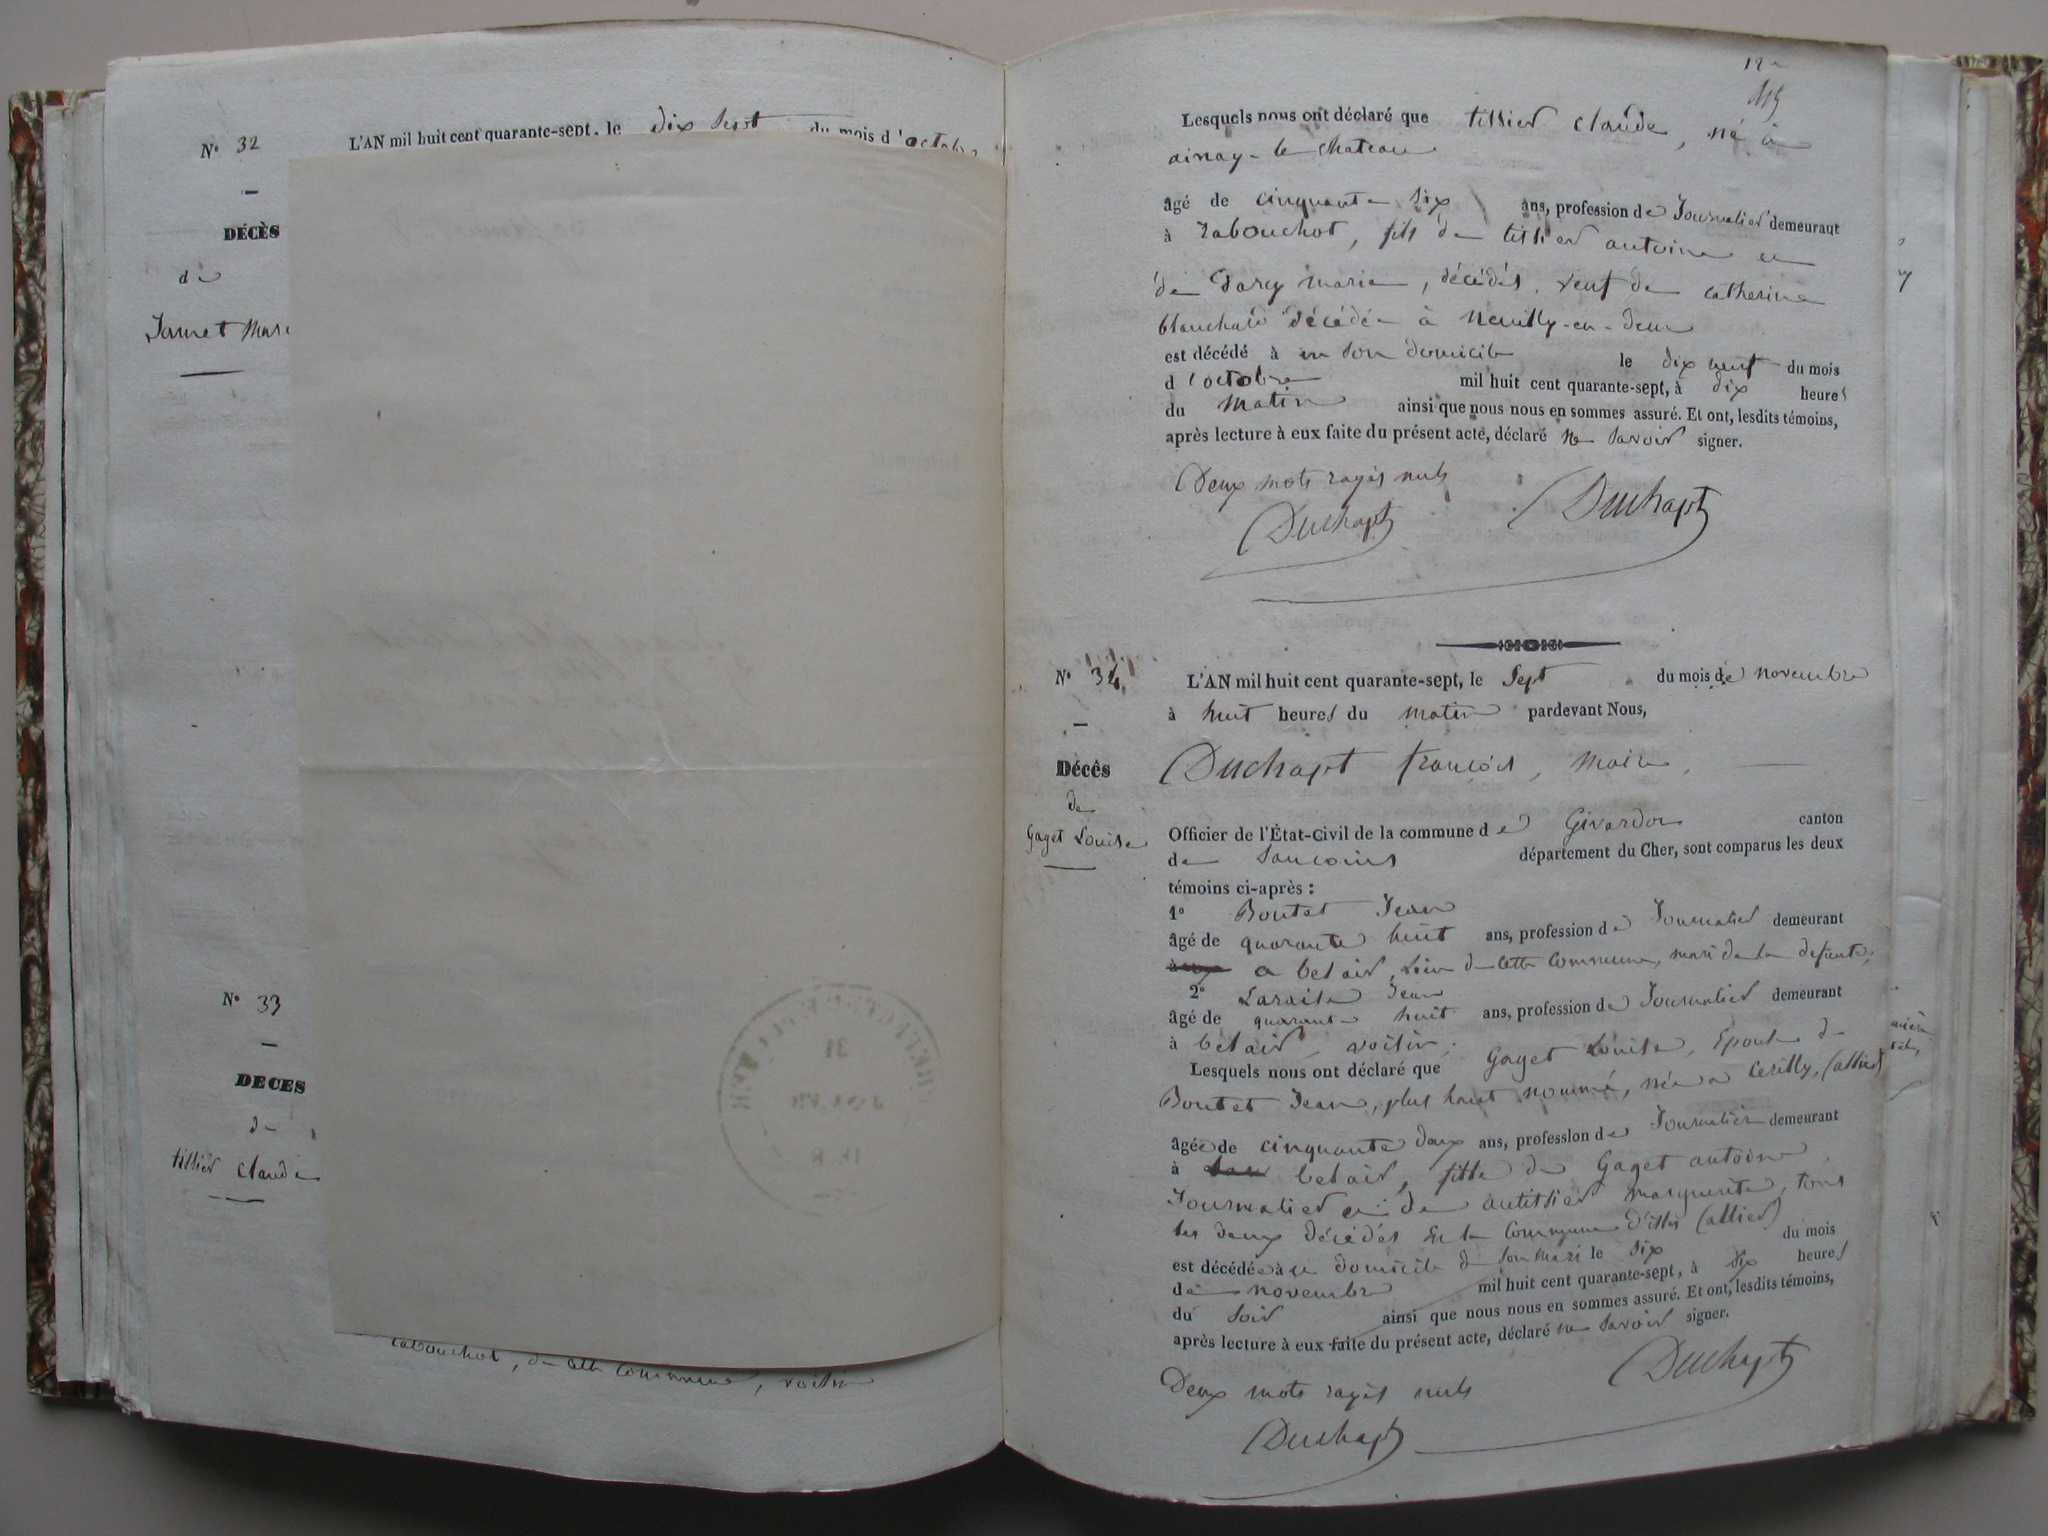 N° 32
L'AN mil huit cent quarante-sept. le dix sept du mois d'octobre
DÉCÈS
de
Jamet
N° 33
DECES
de
tillier claude
de cette commune, voisin
Lesquels nous ont déclaré que tillier claude, né à
ainay-le-chateau
âgé de cinquante six ans, profession de Journalier demeurant
à Rabouchot, fils de tillier antoine et
de Darcy marie, décédés, veuf de catherine
blanchard décédée à Neuilly-en-dun
est décédé à en son domicile le dix neuf du mois
d'octobre mil huit cent quarante-sept, à dix heures
du matin ainsi que nous nous en sommes assuré. Et ont, lesdits témoins,
après lecture à eux faite du présent acte, déclaré ne savoir signer.
Deux mots rayés nuls
Duchapt Duchapt
N° 34
L'AN mil huit cent quarante-sept, le sept du mois de novembre
à huit heures du matin pardevant Nous,
Décès
de
Gaget Louise
Duchapt françois, maire,
Officier de l'État-Civil de la commune de Givardon canton
de Sancoins département du Cher, sont comparus les deux
témoins ci-après :
1° Boutet Jean
âgé de quarante huit ans, profession de Journalier demeurant
a belair, lieu de cette commune, mari de la defunte,
2° Laraise Jean
âgé de quarante huit ans, profession de Journalier demeurant
à belair, voisin.
Lesquels nous ont déclaré que Gaget Louise, Epouse de
Boutet Jean, plus haut nommé, née a Cerilly, (allier)
âgée de cinquante deux ans, profession de Journalier demeurant
à belair, fille de Gaget antoine,
Journalier et de autissier marguerite, tous
les deux décédés en la commune d'isle (allier)
est décédée à ce domicile de son mari le six du mois
de novembre mil huit cent quarante-sept, à dix heures
du soir ainsi que nous nous en sommes assuré. Et ont, lesdits témoins,
après lecture à eux faite du présent acte, déclaré ne savoir signer.
Deux mots rayés nuls
Duchapt
Duchapt